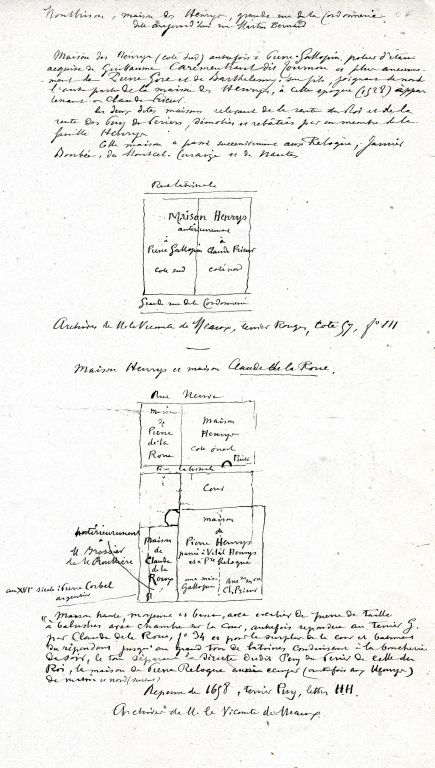 Montbrison, maison des Henrys, grande rue de la Cordonnerie
dite aujourd'hui rue Martin Bernard
Maison des Henrys (côté sud) autrefois à Pierre Gallopin, potier d'étain
acquise de Guillaume Carementrant dit Journon et plus ancienne-
ment de Pierre Gore et de Barthelemy, son fils, joignant de nord
l'autre partie de la maison des Henrys, à cette époque (1528) appar
tenant à Claude Prieur.
Les deux dites maisons relevant de la rente du Roi et de la
rente des Puys de Periers, démolies et rebâties par un membre de la
famille Henrys
Cette maison a passé successivement aux Relogue, Janvier
Bombée, du Montcel. Curaize et de Nantes
Rue Latinale
Maison Henrys
antérieurement
à à
Pierre Gallopin Claude Prieur
côté sud côté nord
Grande rue de la Cordonnerie
Archives de M. le Vicomte de Meaux, terrier Rouge, Cote 57, f° 111
Maison Henrys et maison Claude de la Roue.
Rue Neuve
Maison
de
Pierre
de la
Roue
Maison
Henrys
côté ouest
Puits
Cour
postérieurement
à
M. Brossier
de la Rouillière
au XVIe siècle: Pierre Corbel
argentier
Maison
de Claude
de la
Roue
maison
de
Pierre Henrys
passé à Vital Henrys
et à Pre Relogue
une mais.
Gallopin
une mon
Cl. Prieur
"Maison haute, moyenne et basse, avec escalier de pierre de taille
à balustres avec chambre sur la Cour, autrefois répondue au terrier G.
par Claude de la Roue, f° 34 et pour le surplus de la cour et bâtiment
du répondant jusqu'au grand trou de latrines conduisant à la boucherie
de soir, le tout séparant la directe dudit Puy du Perier de celle du
Roi, la maison de Pierre Relogue aussi écuyer (autrefois aux Henrys)
de matin et nord
Reponse de 1658, terrier Puy, lettre HH.
Archives de M. le Vicomte de Meaux